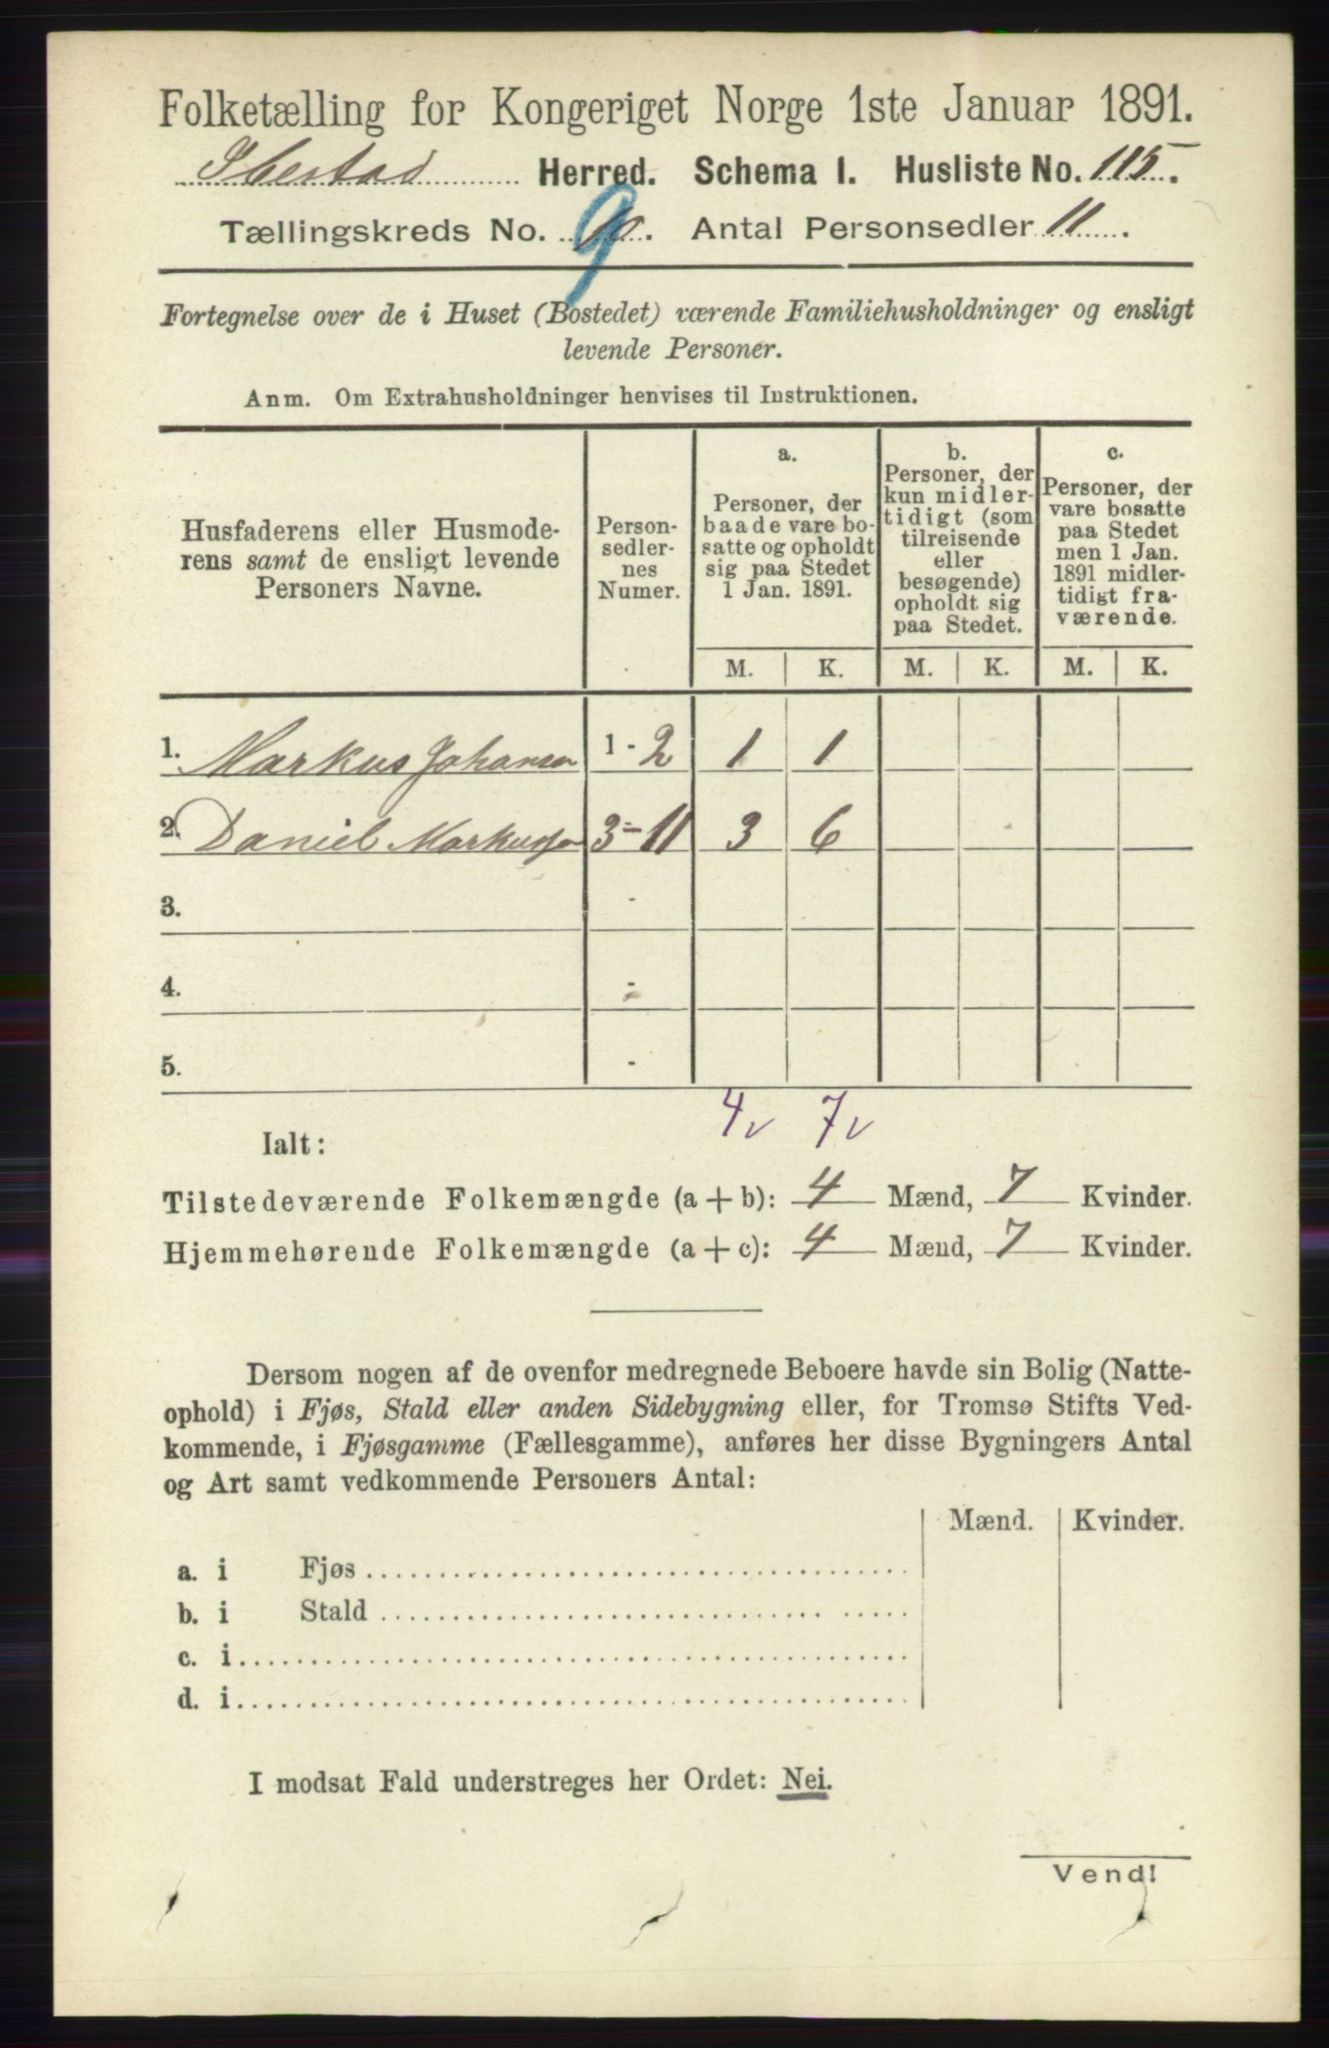 Folketælling for Kongeriget Norge 1ste Januar 1891.
Ibestad Herred. Schema 1. Husliste No. 115.
Tællingskreds No. 10. 9 Antal Personsedler 11.
Fortegnelse over de i Huset (Bostedet) værende Familiehusholdninger og ensligt
levende Personer.
Anm. Om Extrahusholdninger henvises til Instruktionen.
Husfaderens eller Husmode-
rens samt de ensligt levende
Personers Navne.
Person-
sedler-
nes
Numer.
a.
Personer, der
baade vare bo-
satte og opholdt
sig paa Stedet
1 Jan. 1891.
b.
Personer, der
kun midler-
tidigt (som
tilreisende
eller
besøgende)
opholdt sig
paa Stedet.
c.
Personer, der
vare bosatte
paa Stedet
men 1 Jan.
1891 midler-
tidigt fra-
værende.
M. K. M. K. M. K.
1. Markus Johansen 1 - 2 1 1
2. Daniel Markussen 3 - 11 3 6
3. -
4. -
5. -
4v 7v
Ialt:
Tilstedeværende Folkemængde (a + b): 4 Mænd, 7 Kvinder.
Hjemmehørende Folkemængde (a + c): 4 Mænd, 7 Kvinder.
Dersom nogen af de ovenfor medregnede Beboere havde sin Bolig (Natte-
ophold) i Fjøs, Stald eller anden Sidebygning eller, for Tromsø Stifts Ved-
kommende, i Fjøsgamme (Fællesgamme), anføres her disse Bygningers Antal
og Art samt vedkommende Personers Antal:
Mænd. Kvinder.
a. i Fjøs
b. i Stald
c. i
d. i
I modsat Fald understreges her Ordet: Nei.
Vend!